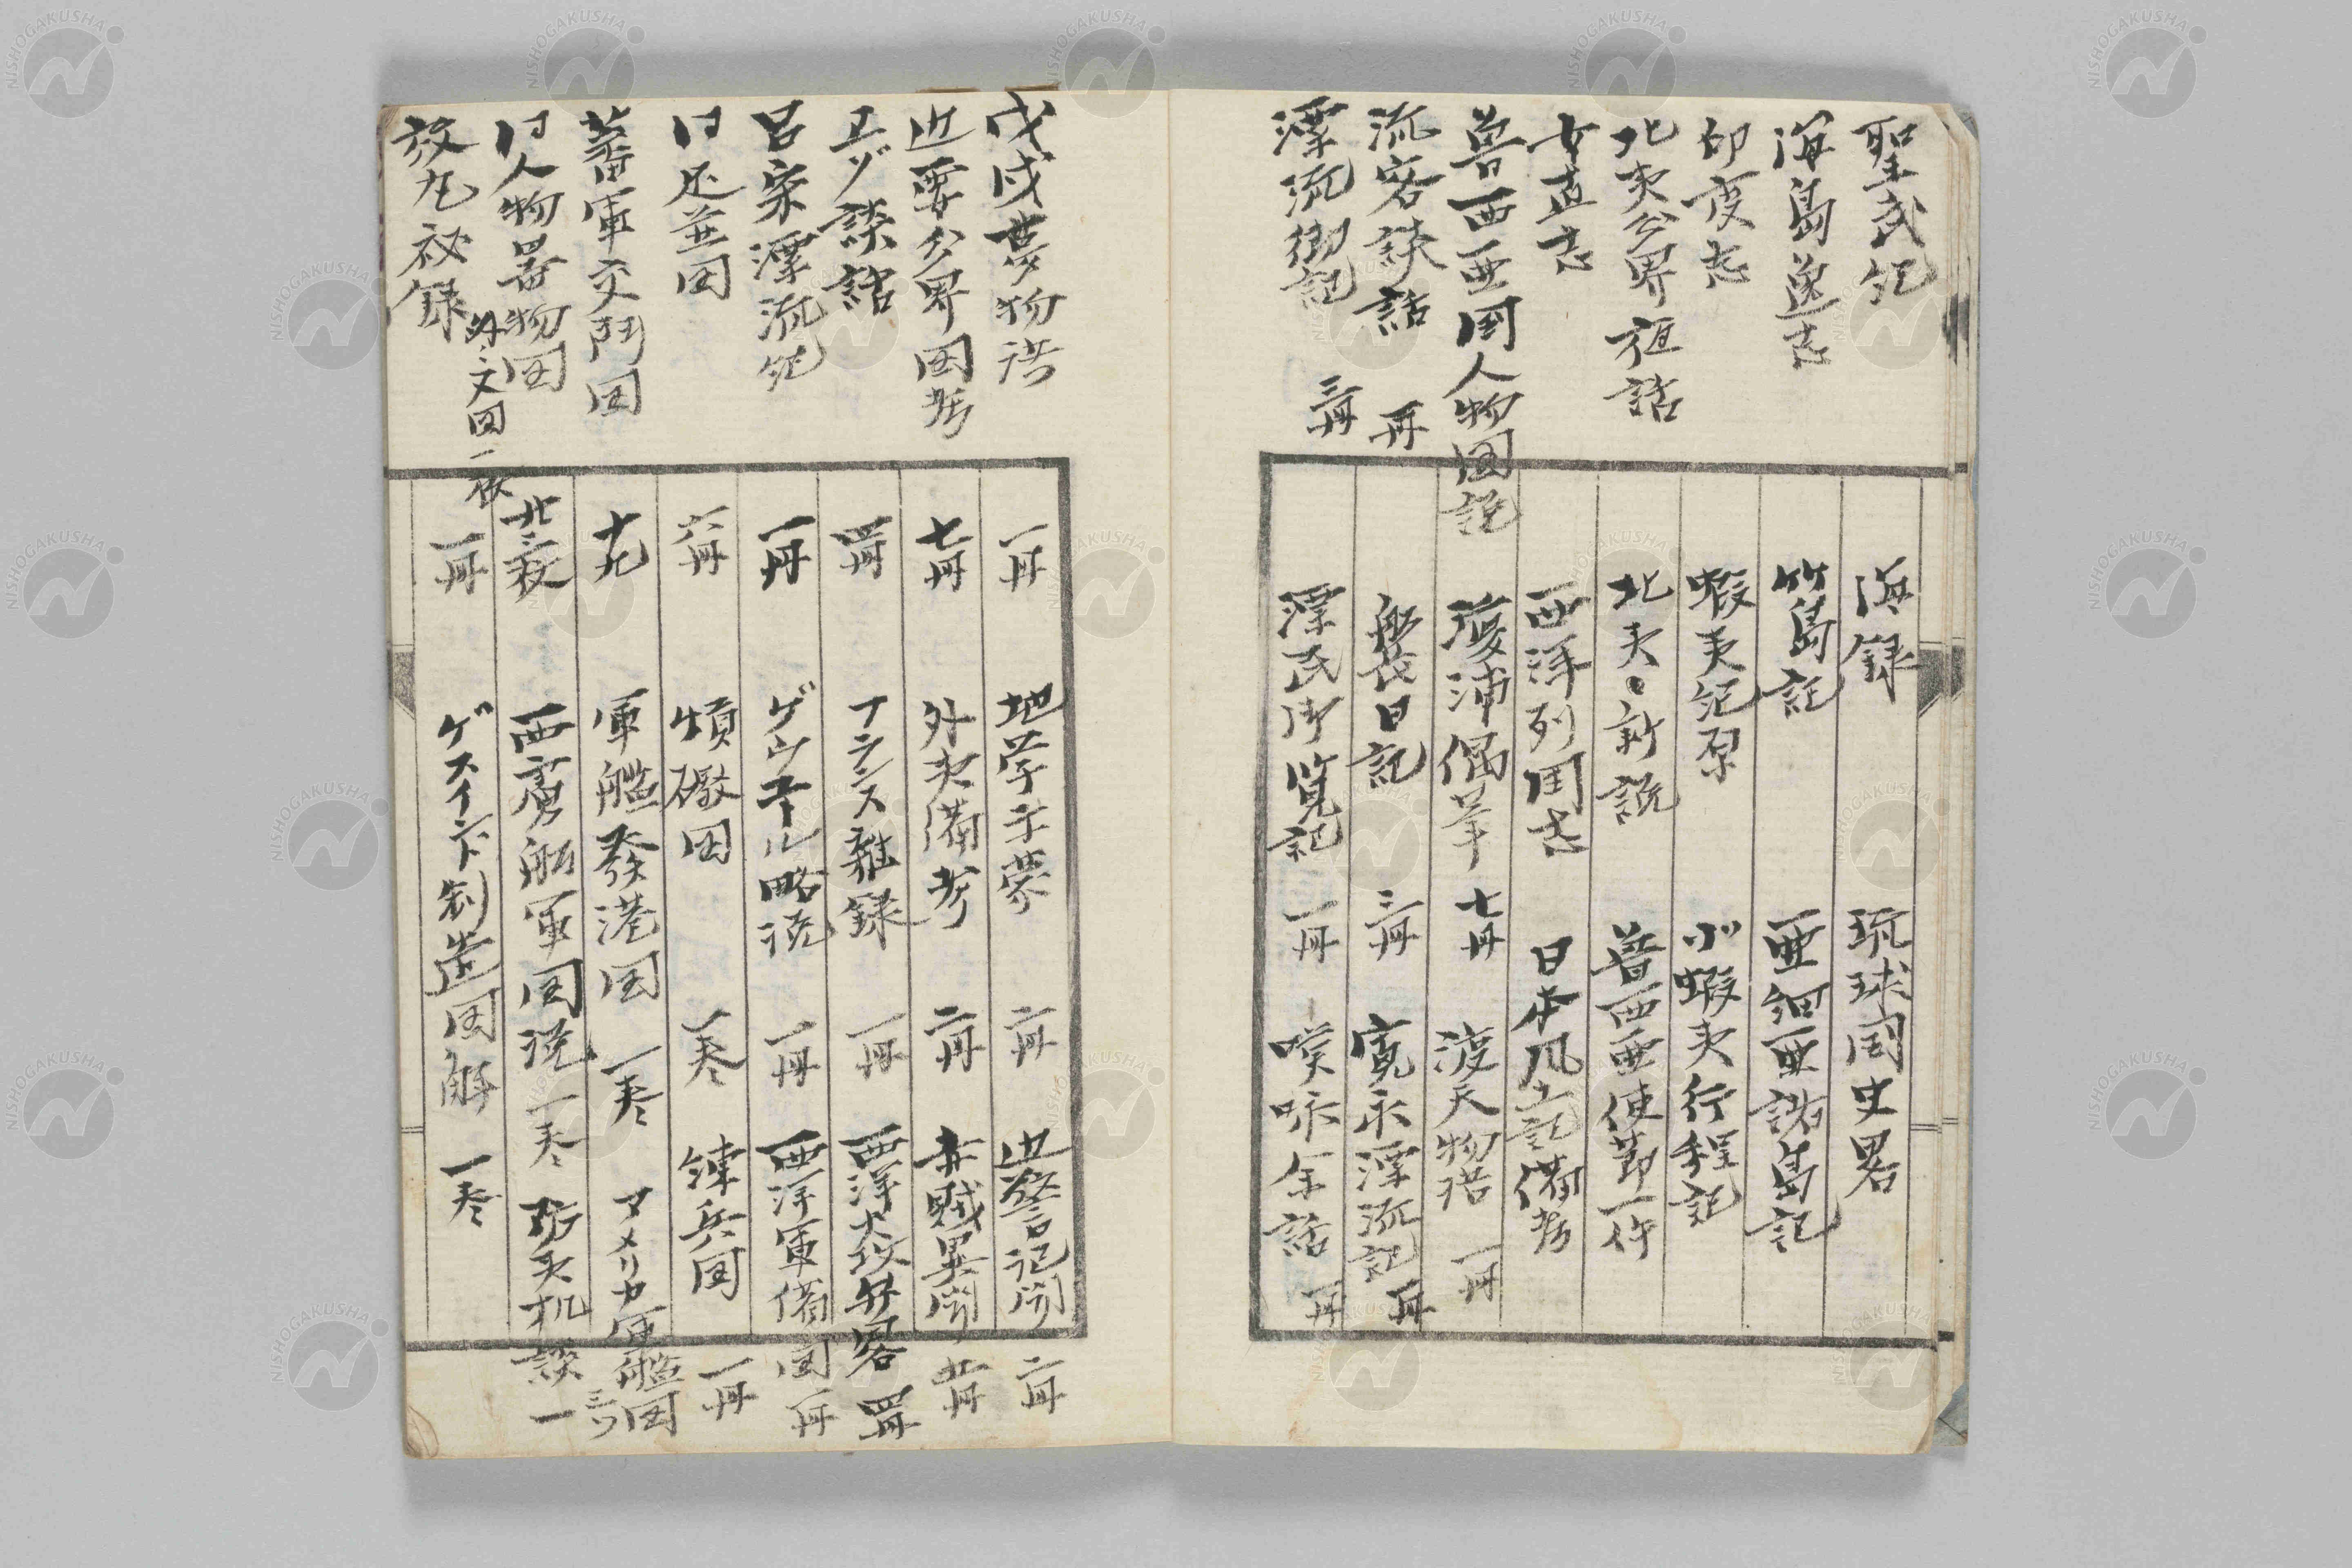 聖武紀 海録 琉球国史畧
海島逸志 竹島記 亜細亜諸島記
印度志 蝦夷紀原 小蝦夷行程記
北夷分界夜話 北夷新説 魯西亜使節一件
女直志 西洋列国志 日本風土記備考
魯西亜国人物図説 漂浦偶筆 七冊 渡天物語 一冊
流客談話 一冊 船長日記 三冊 寛永漂流記 一冊
漂流御記 三冊 漂民御覧記 一冊 嘆咏余話 一冊
戊戌夢物語 一冊 地学子夢 二冊 近警記聞 二冊
近西分界図考 七冊 外夷備考 二冊 赤賊異聞 廿冊
ヱゾ談話 四冊 フランス雑録 一冊 西洋火攻弁畧 四冊
呂宋漂流紀 一冊 一冊 西洋軍備図 一冊
六冊 一巻 錬兵図 一冊
蕃軍交闘図 軍艦發港図 一巻 アメリカ軍艦図 三ツ
人物器物図 北三枚 西虜船軍図説 一巻 防夷机談 一
放丸秘録 一冊 制造図解 一巻
NISHOGAKUSHA